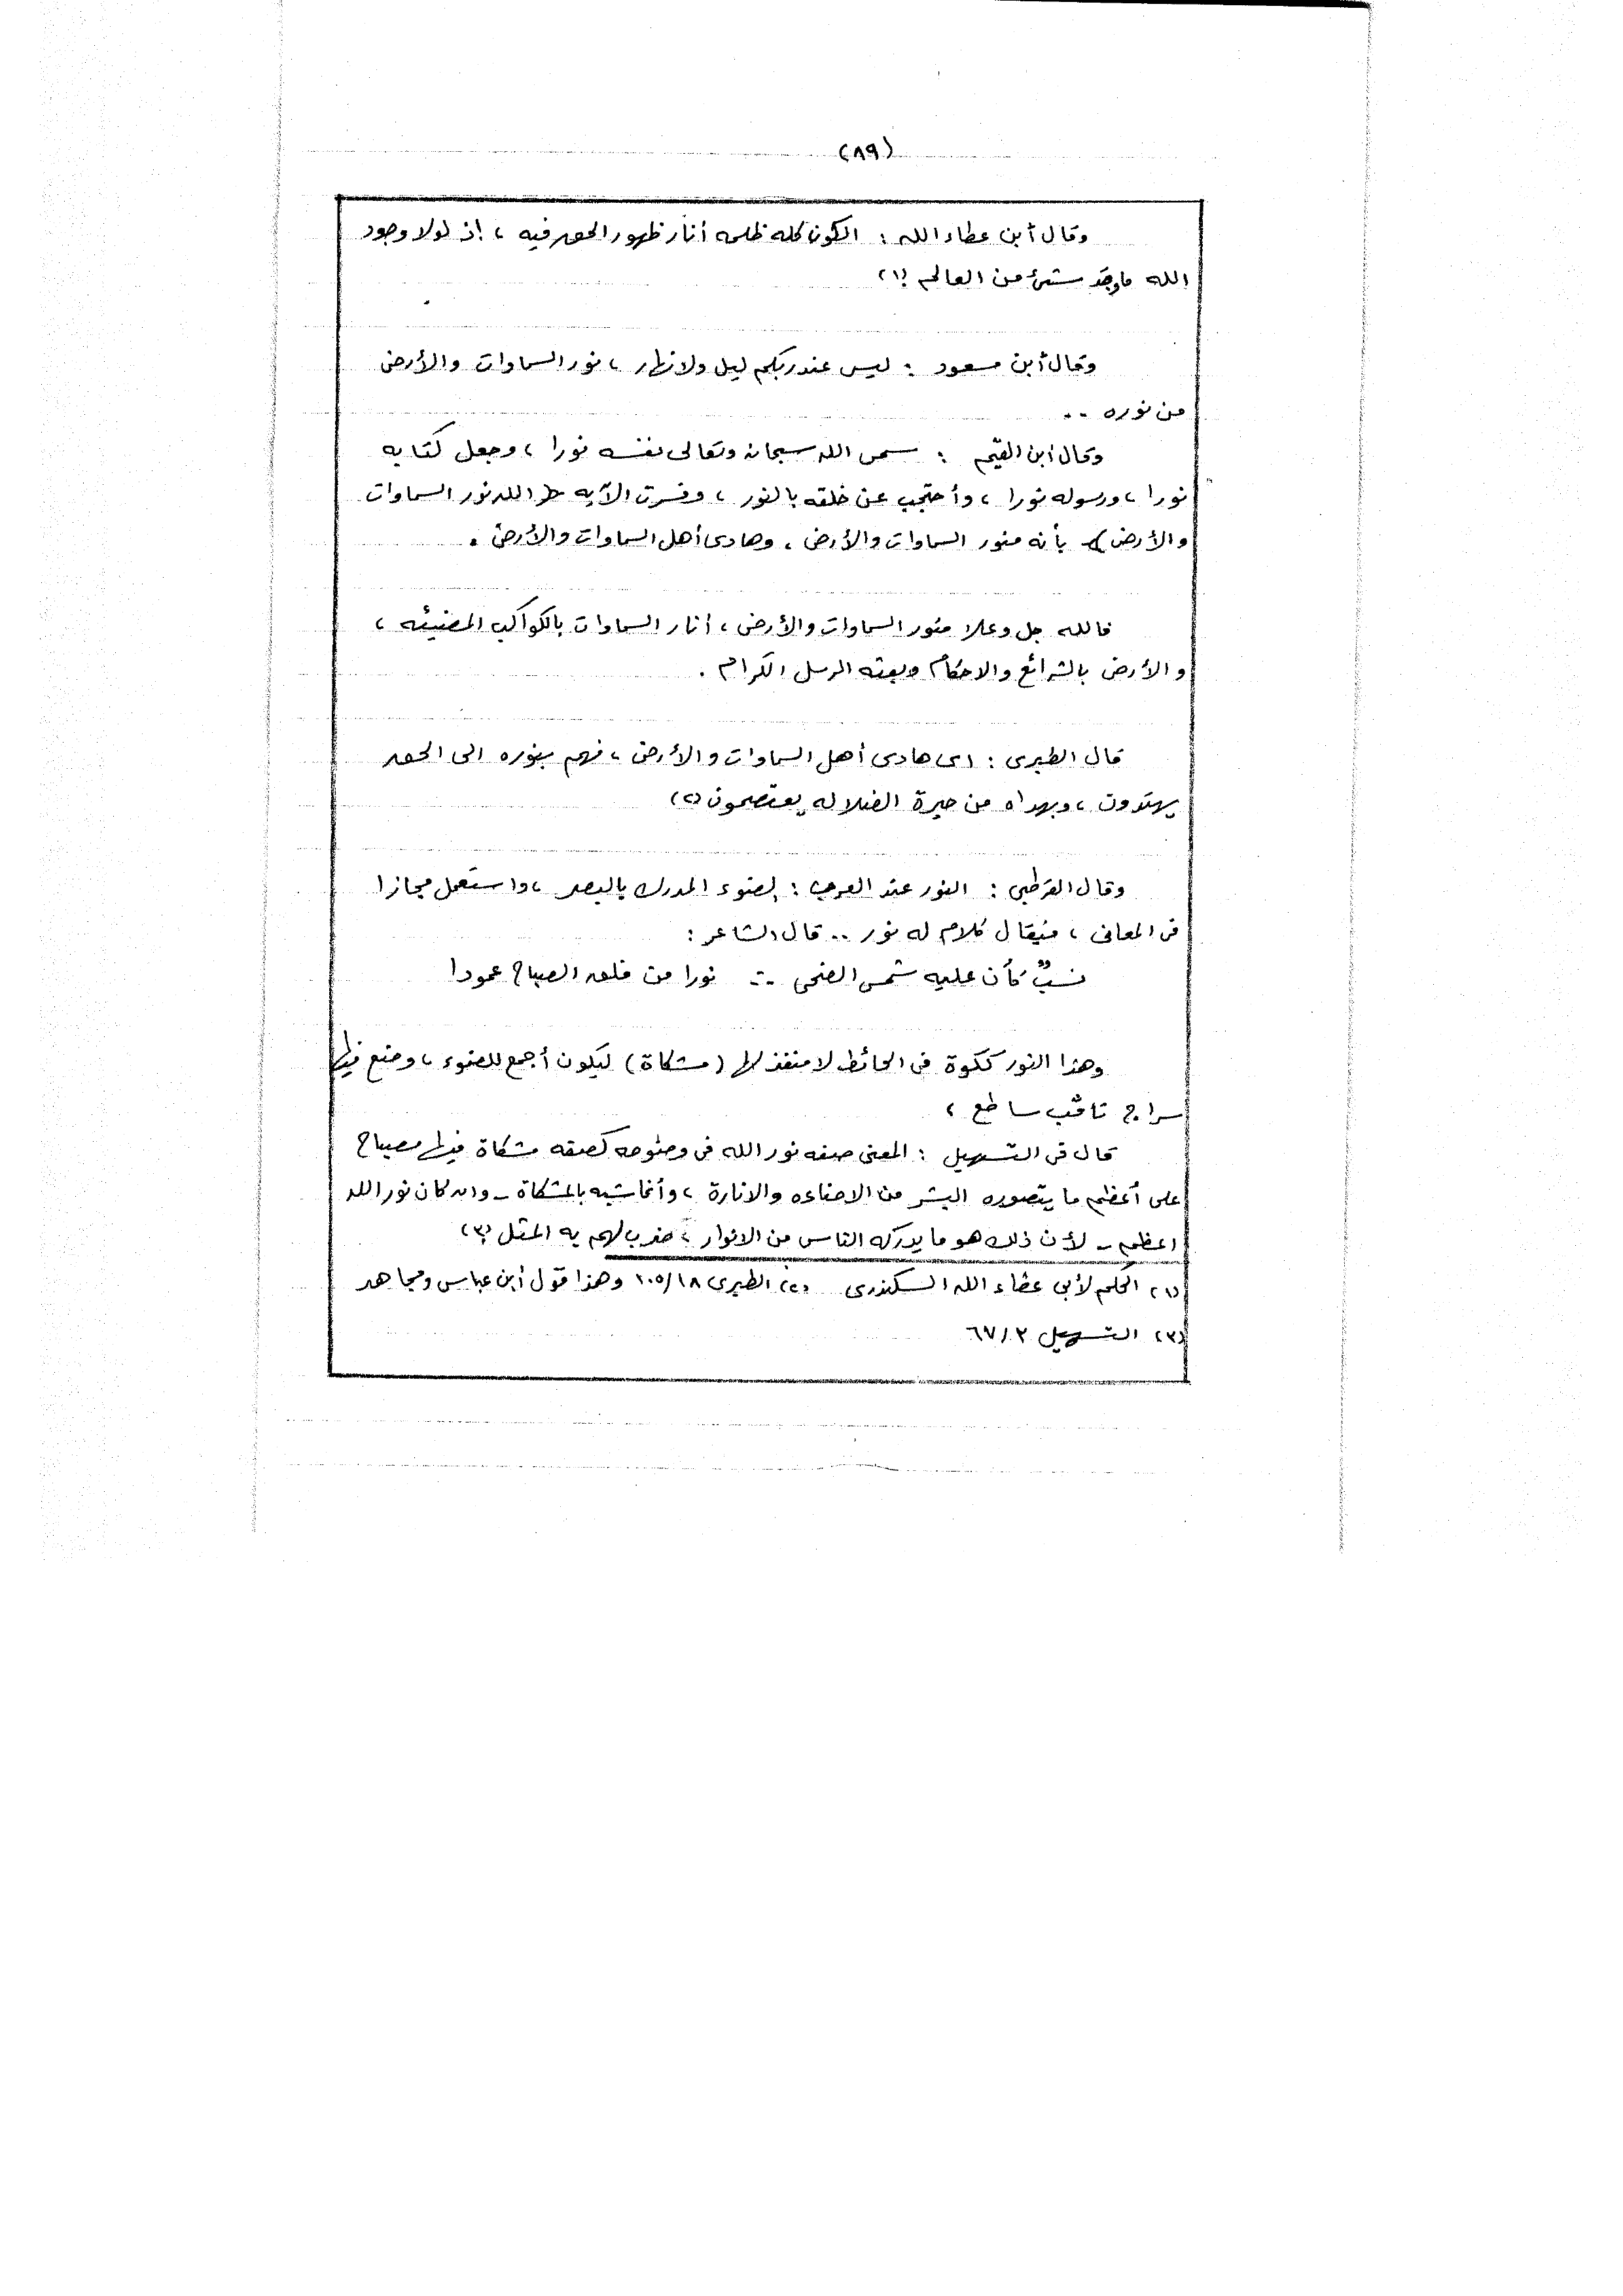 (٨٩)
وقال أبن عطاء الله : الكون كله ظلمه أنار ظهور الحق فيه ، إذ لولا وجود
الله ما وجد شئ من العالم (١)
وقال أبن مسعود : ليس عند ربكم ليل ولا نهار ، نور السماوات والأرض
من نوره ..
وقال ابن القيّم : سمى الله سبحانه وتعالى نفسه نورا ، وجعل كتابه
نورا ، ورسوله نورا ، وأحتجب عن خلقه بالنور ، وفسرت الآيه ﴿ الله نور السماوات
والأرض ﴾ بأنه منور السماوات والأرض ، وهادى أهل السماوات والأرض .
فالله جل وعلا منور السماوات والأرض ، أنار السماوات بالكواكب المضيئه ،
والأرض بالشرائع والاحكام وبعثه الرسل الكرام .
قال الطبرى : اى هادى أهل السماوات والأرض ، فهم بنوره الى الحق
يهتدون ، وبهداه من حيرة الضلاله يعتصمون (٢)
وقال القرطبى : النور عند العرب : الضوء المدرك بالبصر ، واستعمل مجازا
فى المعانى ، فيقال كلام له نور .. قال الشاعر :
نسبٌ كأن عليه شمس الضحى .. نورا من فلق الصباح عمودا
وهذا النور ككوة فى الحائط لا منفذ لها (مشكاة) ليكون أجمع للضوء ، وضع فيها
سراج ثاقب ساطع ،
قال فى التسهيل : المعنى صفه نور الله فى وضوحه كصفه مشكاة فيها مصباح
على أعظم ما يتصوره البشر من الاضاءه والانارة ، وأنما شبه بالمشكاة - وان كان نور الله
اعظم - لأن ذلك هو ما يدركه الناس من الانوار ، ضرب لهم به المثل (٣)
(١) الحكم لأبى عطاء الله السكندرى (٢) الطبرى ١٠٥/١٨ وهذا قول أبن عباس ومجاهد
(٣) التسهيل ٦٧/٣